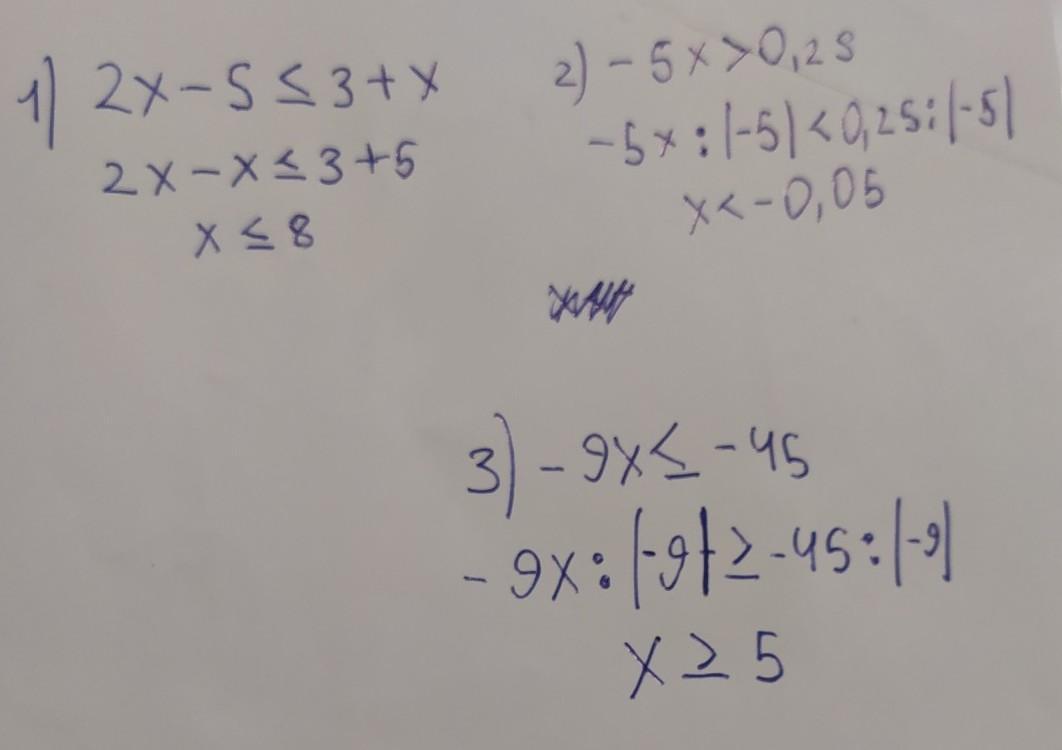 1) 2x - 5 ≤ 3 + x
2x - x ≤ 3 + 5
x ≤ 8
2) - 5x > 0,25
- 5x : |-5| < 0,25 : |-5|
x < - 0,05
3) - 9x ≤ - 45
- 9x : |-9| ≥ - 45 : |-9|
x ≥ 5